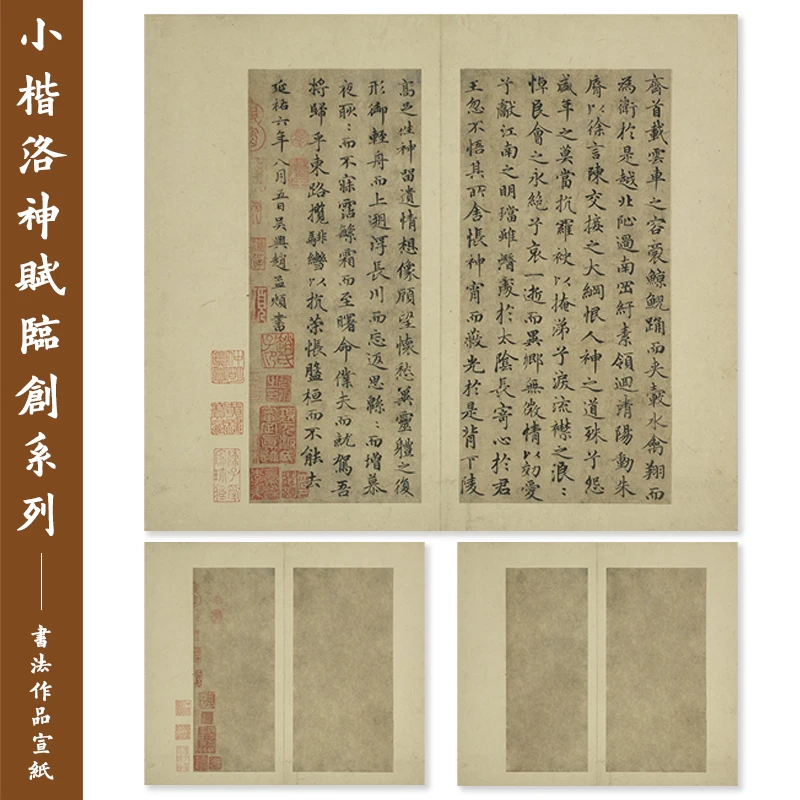 小楷洛神賦臨創系列——書法作品宣紙
齊首載雲車之容裔鯨鯢踊而夾轂水禽翔而
為衛於是越北沚過南岡紆素領迴清陽動朱
脣以徐言陳交接之大綱恨人神之道殊兮怨
盛年之莫當抗羅袂以掩涕兮淚流襟之浪ː
悼良會之永絕兮哀一逝而異鄉無微情以効愛
兮獻江南之明璫雖潛處於太陰長寄心於君
王忽不悟其所舍悵神宵而蔽光於是背下陵
高足往神留遺情想像顧望懷愁冀靈體之復
形御輕舟而上遡浮長川而忘返思緜ː而增慕
夜耿ː而不寐霑繁霜而至曙命僕夫而就駕吾
將歸乎東路攬騑轡以抗策悵盤桓而不能去
延祐六年八月五日吳興趙孟頫書